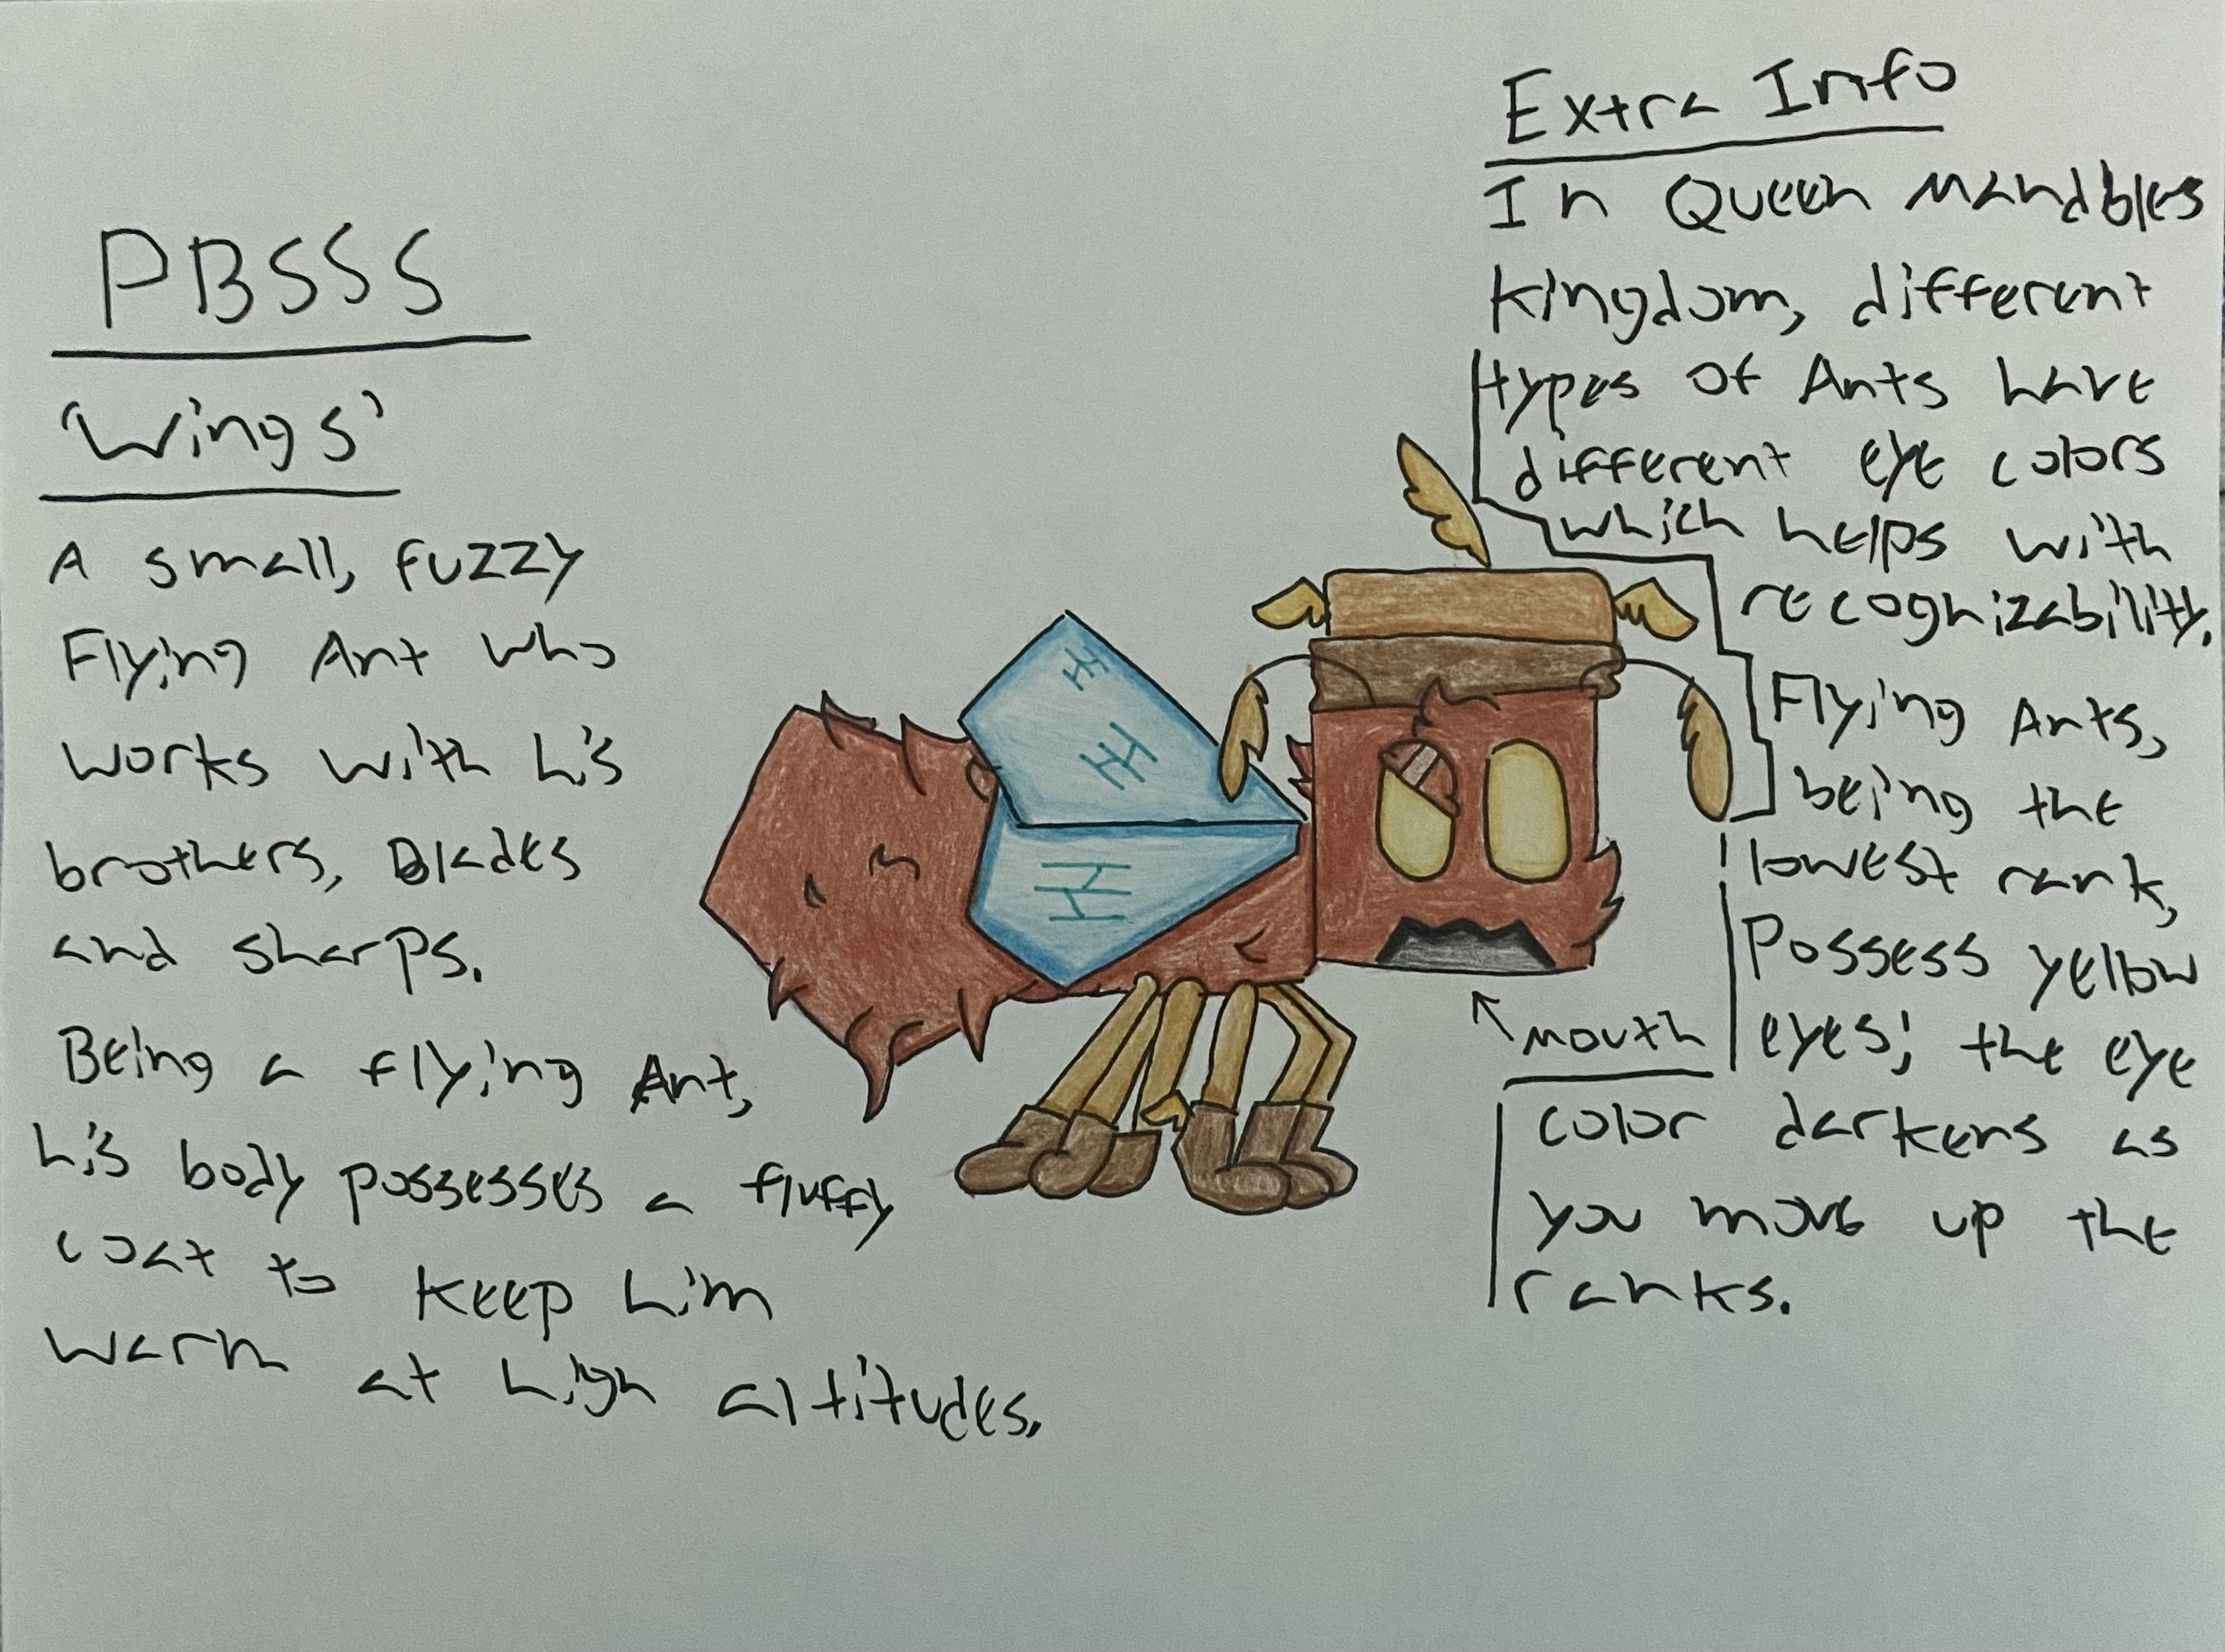 PBSSS
'Wings'
A small, fuzzy
Flying Ant who
works with his
brothers, Blades
and sharps.
Being a flying Ant,
his body possesses a fluffy
coat to keep him
warm at high altitudes.
Extra Info
In Queen Mandbles
kingdom, different
types of Ants have
different eye colors
which helps with
recognizability.
Flying Ants,
being the
lowest rank,
Possess yellow
eyes; the eye
color darkens as
you move up the
ranks.
mouth